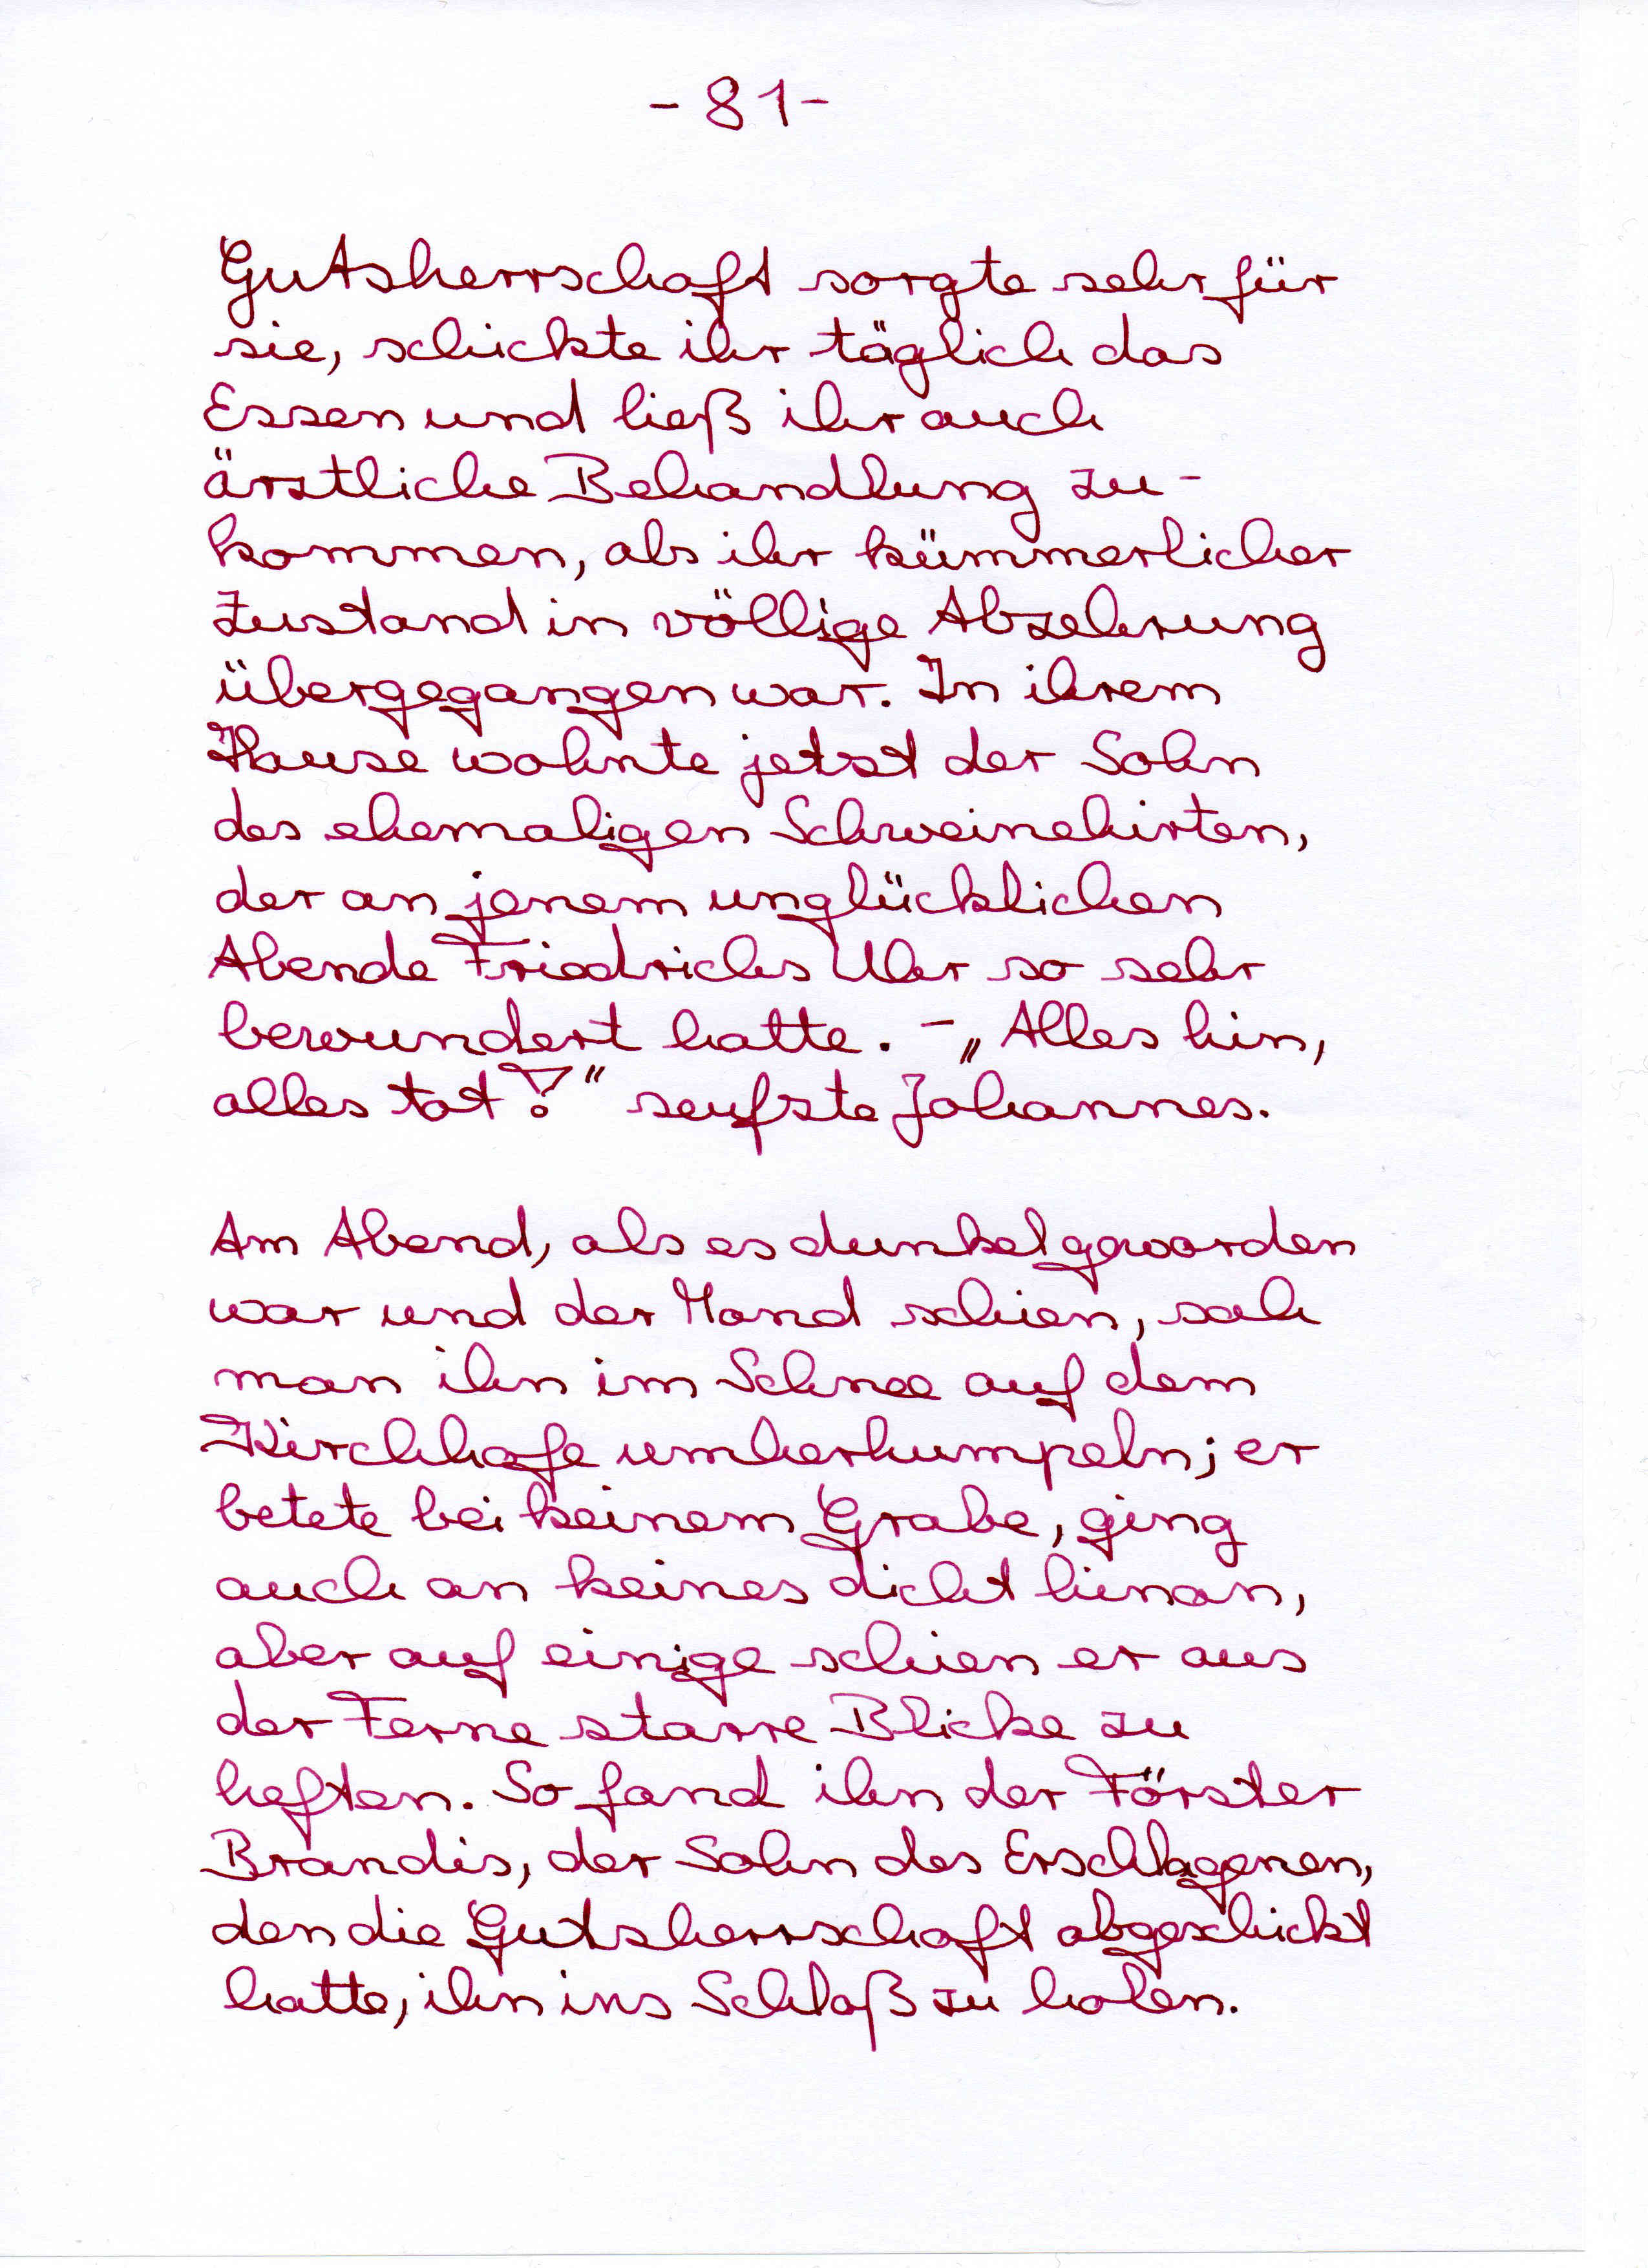 - 81 -
Gutsherrschaft sorgte sehr für
sie, schickte ihr täglich das
Essen und ließ ihr auch
ärztliche Behandlung zu-
kommen, als ihr kümmerlicher
Zustand in völlige Abzehrung
übergegangen war. In ihrem
Hause wohnte jetzt der Sohn
des ehemaligen Schweinehirten,
der an jenem unglücklichen
Abende Friedrichs Uhr so sehr
bewundert hatte. - „Alles hin,
alles tot!“ seufzte Johannes.
Am Abend, als es dunkel geworden
war und der Mond schien, sah
man ihn im Schnee auf dem
Kirchhofe umherhumpeln; er
betete bei keinem Grabe, ging
auch an keines dicht hinan,
aber auf einige schien er aus
der Ferne starre Blicke zu
heften. So fand ihn der Förster
Brandis, der Sohn des Erschlagenen,
den die Gutsherrschaft abgeschickt
hatte, ihn ins Schloß zu holen.